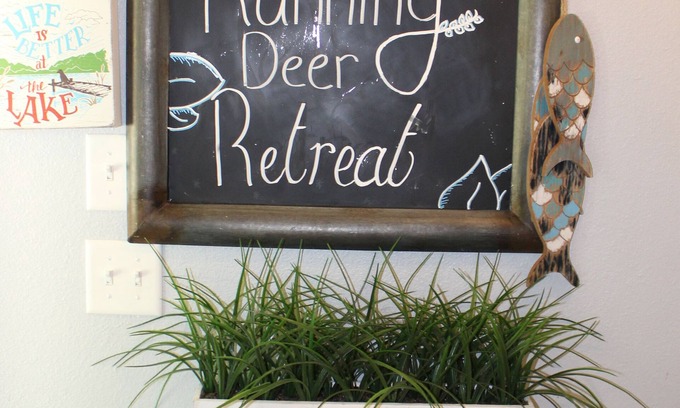 LIFE
is
BETTER
at
the
LAKE
Running
Deer
Retreat